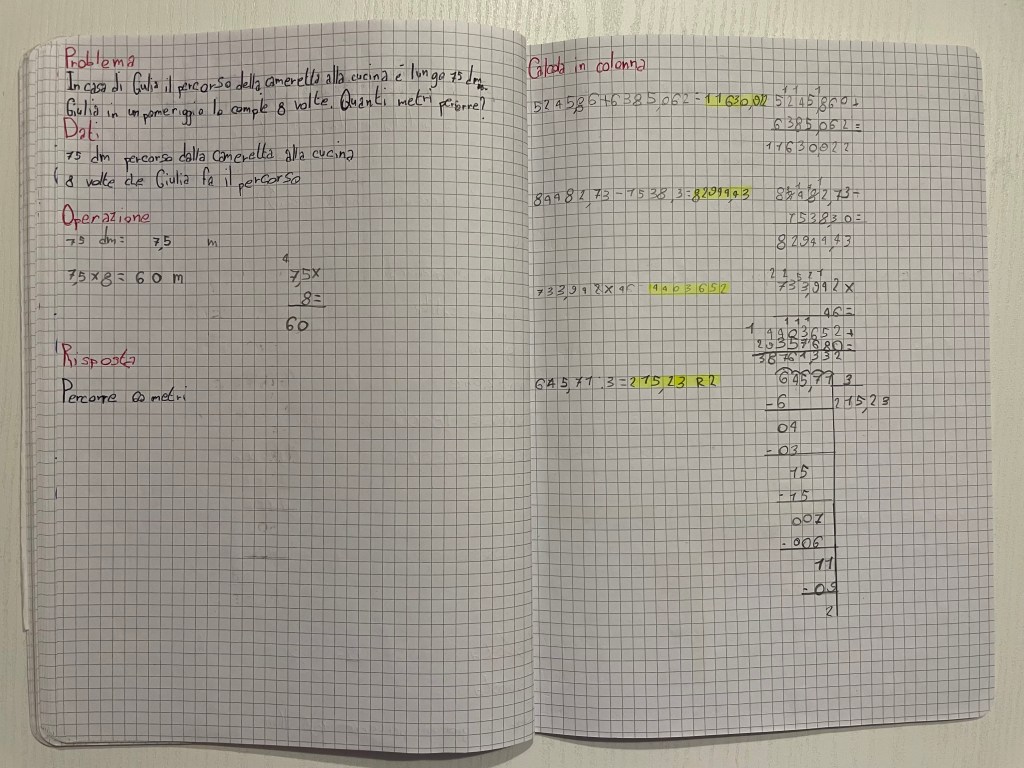 Problema
In casa di Gulia il percorso della cameretta alla cucina è lungo 75 dm.
Giulia in un pomeriggio lo compie 8 volte. Quanti metri percorre?
Dati
75 dm percorso dalla cameretta alla cucina
8 volte che Giulia fa il percorso
Operazione
75 dm = 7,5 m
7,5 x 8 = 60 m
4
7,5x
8=
60
Risposta
Percorre 60 metri
in colonna
5245,86+6385,062=
5245,860+
6385,062=
11630,922
89982,73-7538,3=
7538,30=
733,942x46
2 1 5 1
733,942x
46=
1 1 1
4403652+
645,71:3=215,23 R2
645,71 3
-6 215,23
04
-03
15
-15
007
-006
11
-09
2